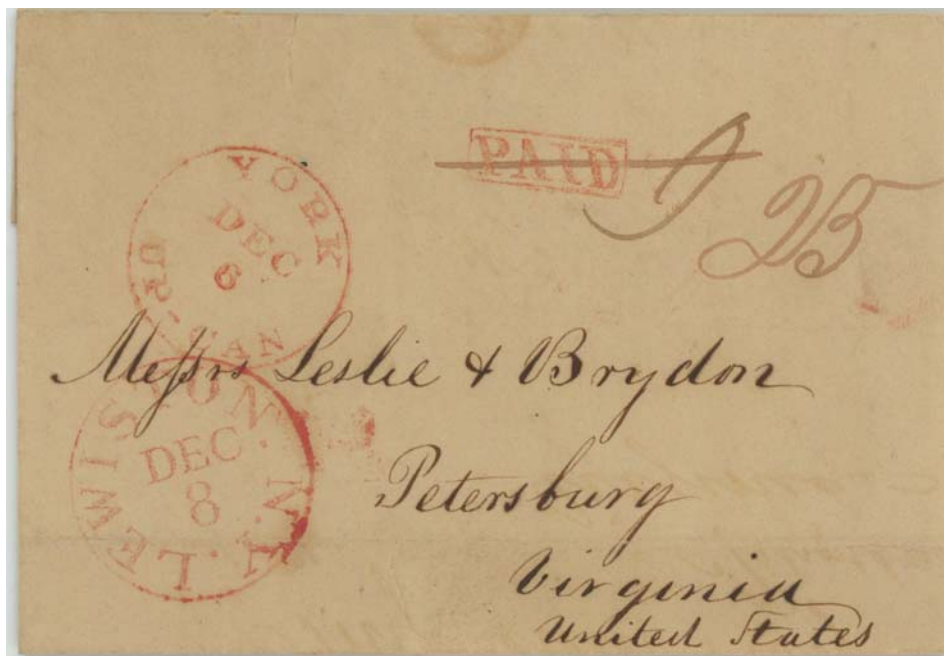 PAID 9
25
YORK
DEC
6
UP. CAN
Messrs Leslie & Brydon
LEWISTON. N.Y.
DEC
8
Petersburg
Virginia
United States